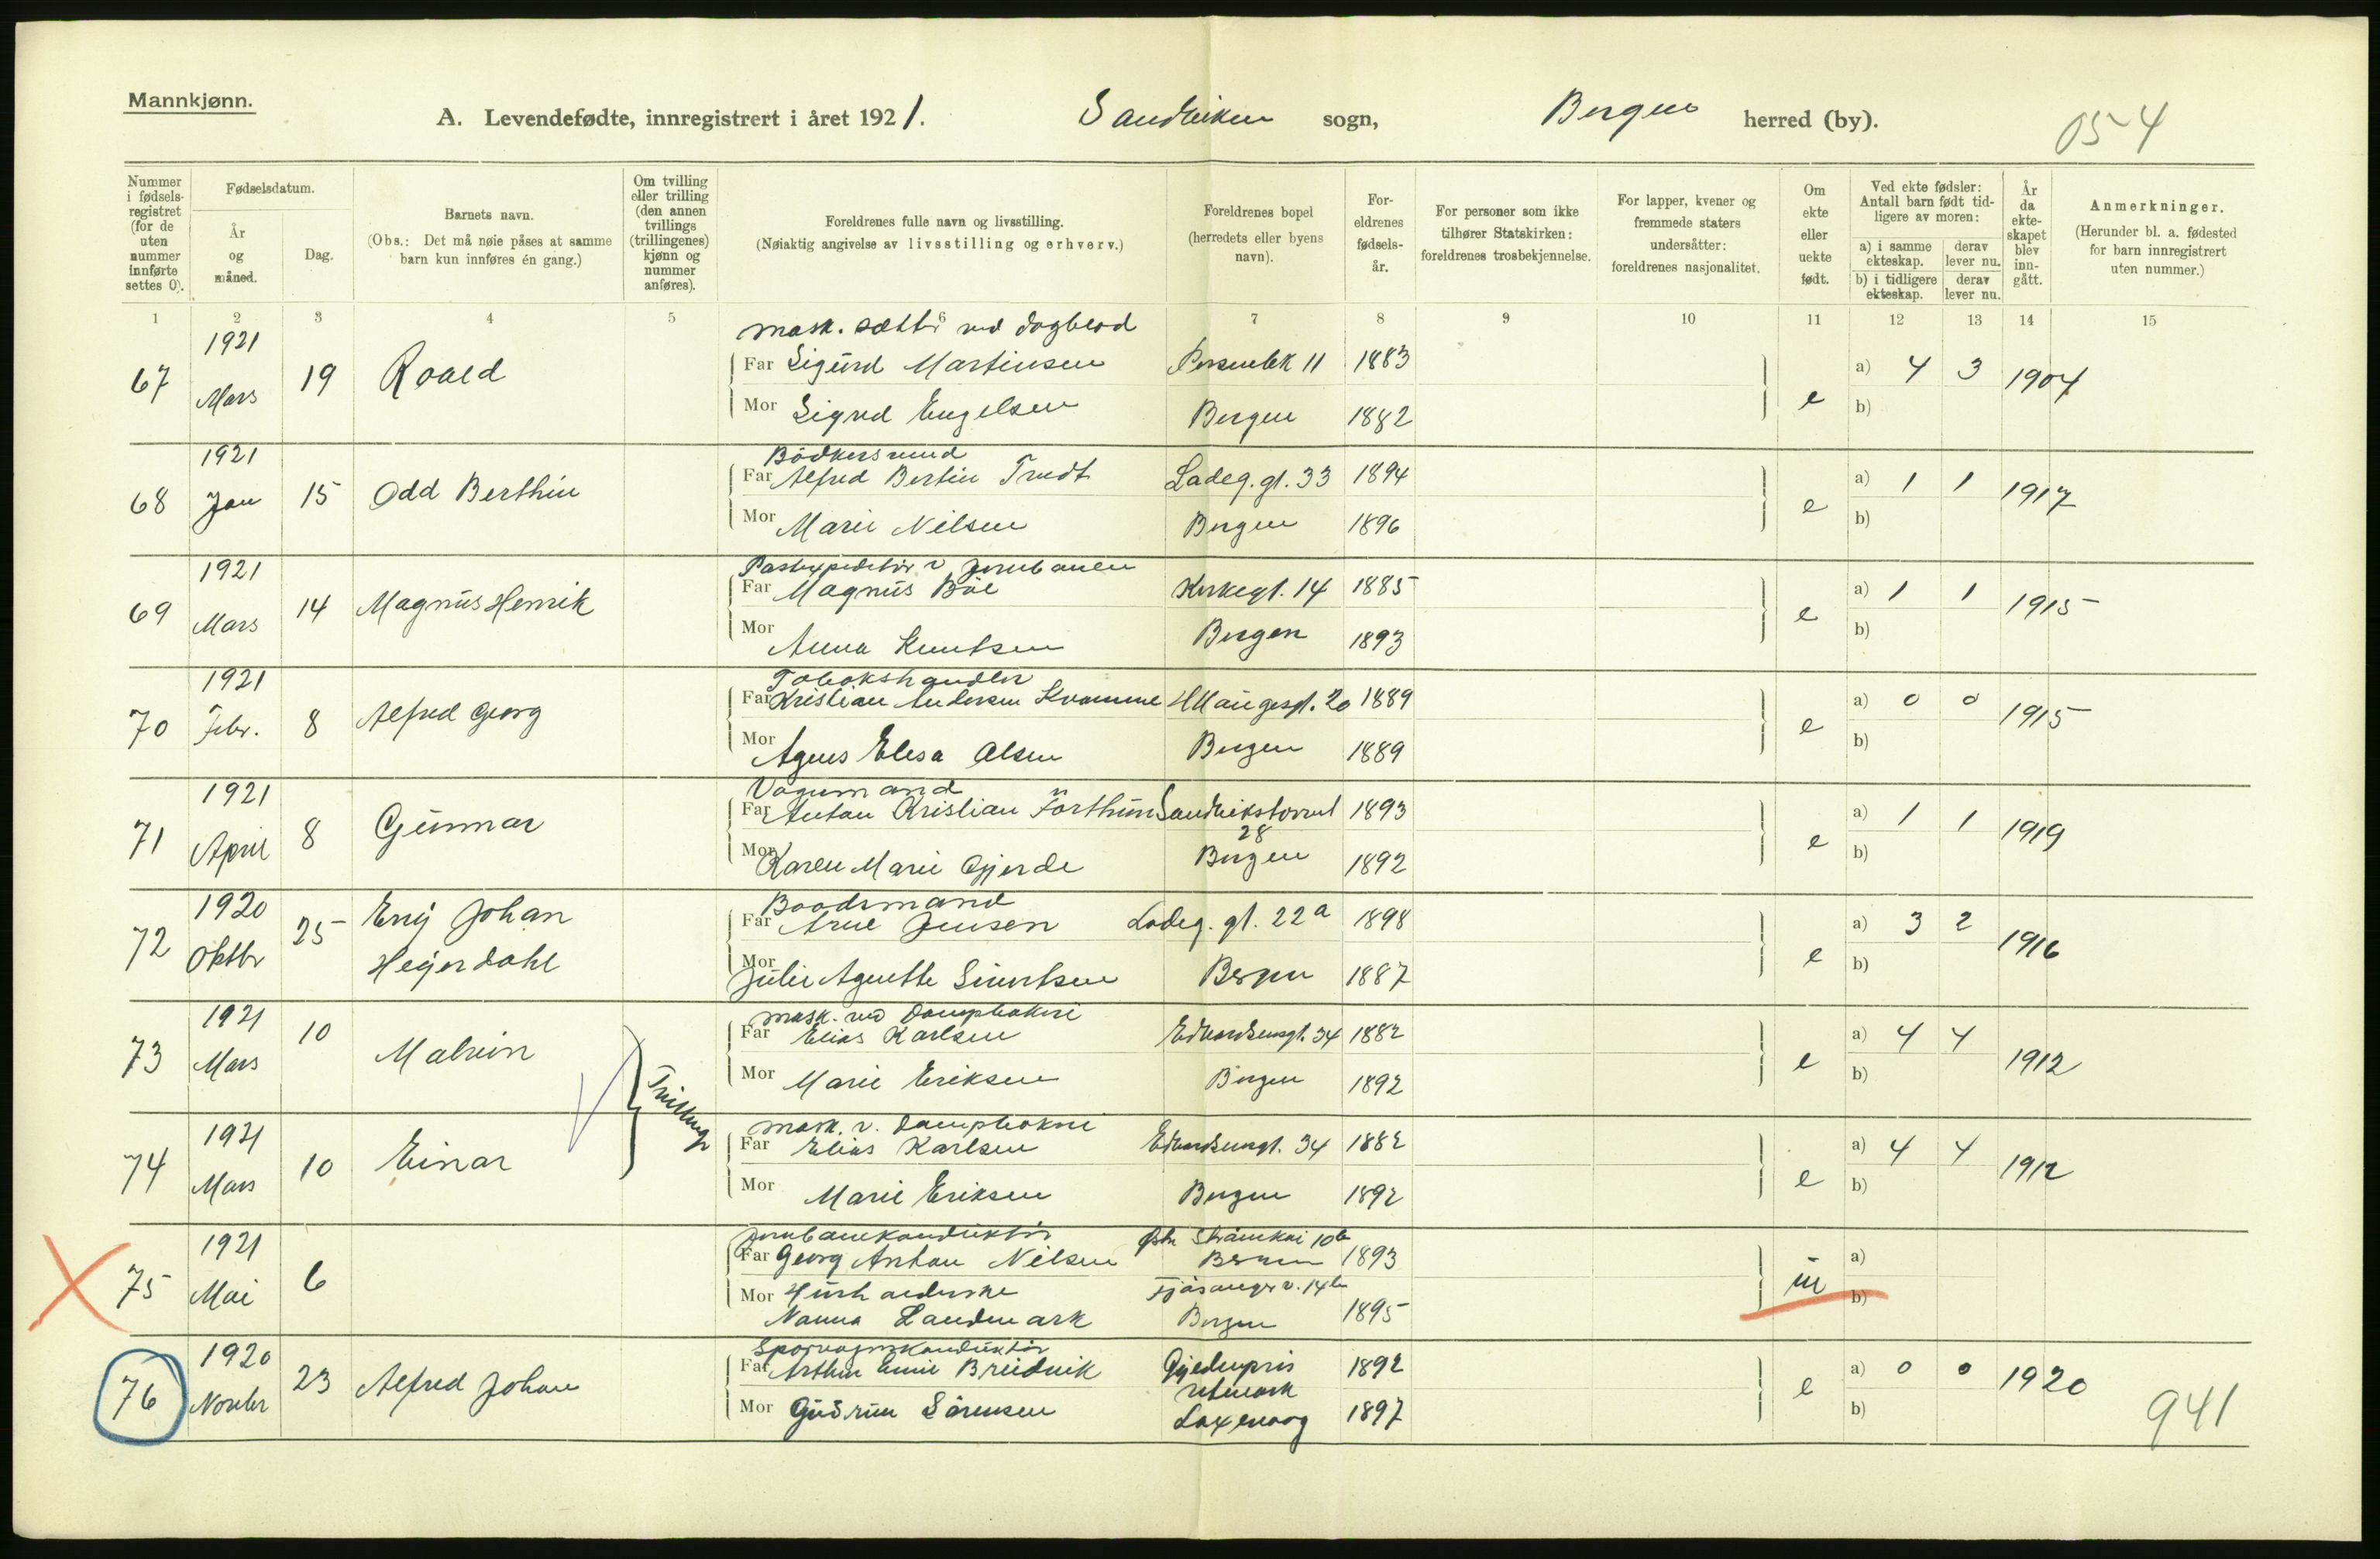 Mannkjønn.
A. Levendefødte, innregistrert i året 1921. Sandviken sogn, Bergen herred (by). 054
Nummer i fødsels-registret (for de uten nummer innførte settes 0).
Fødselsdatum.
År og måned.
Dag.
Barnets navn.
(Obs.: Det må nøie påses at samme barn kun innføres én gang.)
Om tvilling eller trilling (den annen tvillings (trillingenes) kjønn og nummer anføres).
Foreldrenes fulle navn og livsstilling.
(Nøiaktig angivelse av livsstilling og erhverv.)
Foreldrenes bopel (herredets eller byens navn).
For-eldrenes fødsels-år.
For personer som ikke tilhører Statskirken: foreldrenes trosbekjennelse.
For lapper, kvener og fremmede staters undersåtter: foreldrenes nasjonalitet.
Om ekte eller uekte født.
Ved ekte fødsler: Antall barn født tid-ligere av moren:
a) i samme ekteskap. derav lever nu.
b) i tidligere ekteskap. derav lever nu.
År da ekte-skapet blev inn-gått.
Anmerkninger.
(Herunder bl. a. fødested for barn innregistrert uten nummer.)
1 2 3 4 5 6 7 8 9 10 11 12 13 14 15
mask. sætter ved dagblad
67 1921 Mars 19 Roald
Far Sigurd Martinsen 1883 a) 4 3 1904
Mor Sigrid Engelsen Bergen 1882 e b)
Bödkersvend
68 1921 Jan 15 Odd Berthin
Far Alfred Bertin Ladeg. gt. 33 1894 a) 1 1 1917
Mor Marie Nilsen Bergen 1896 e b)
Postexpeditör v Jernbanen
69 1921 Mars 14 Magnus Henrik
Far Magnus Böe Kirkegt. 14 1885 a) 1 1 1915
Mor Anna Knutsen Bergen 1893 e b)
Tobakshandler
70 1921 Febr. 8 Alfred Georg
Far Kristian Andersen Kvamme H Haugesgt. 20 1889 a) 0 0 1915
Mor Agnes Elisa Olsen Bergen 1889 e b)
Vognmand
71 1921 April 8 Gunnar
Far Anton Kristian Forthun Sandvikstorvet 28 1893 a) 1 1 1919
Mor Karen Marie Gjerde Bergen 1892 e b)
Baadsmand
72 1920 Oktbr 25 Erig Johan Hegerdahl
Far Arne Jensen Ladeg. gt. 22a 1898 a) 3 2 1916
Mor Julie Agnethe Sivertsen Bergen 1887 e b)
mask. ved Dampbakeri
73 1921 Mars 10 Malvin
Far Elias Karlsen Edvardsensgt. 34 1882 a) 4 4 1912
Mor Marie Eriksen Bergen 1892 e b)
Tvillinger
mask. v. Dampbakeri
74 1921 Mars 10 Einar
Far Elias Karlsen Edvardsensgt. 34 1882 a) 4 4 1912
Mor Marie Eriksen Bergen 1892 e b)
Jernbanekonduktör
75 1921 Mai 6
Far Georg Anton Nilsen Bergen 1893 a)
Mor Husholderske Fjösangerv. 14b
Nanna Landmark Bergen 1895 b)
Sporvognskonduktör
76 1920 Novbr 23 Alfred Johan
Far Arthur Emil Breidvik 1892 a) 0 0 1920
Mor Gudrun Sörensen Laxevaag 1897 e b)
941